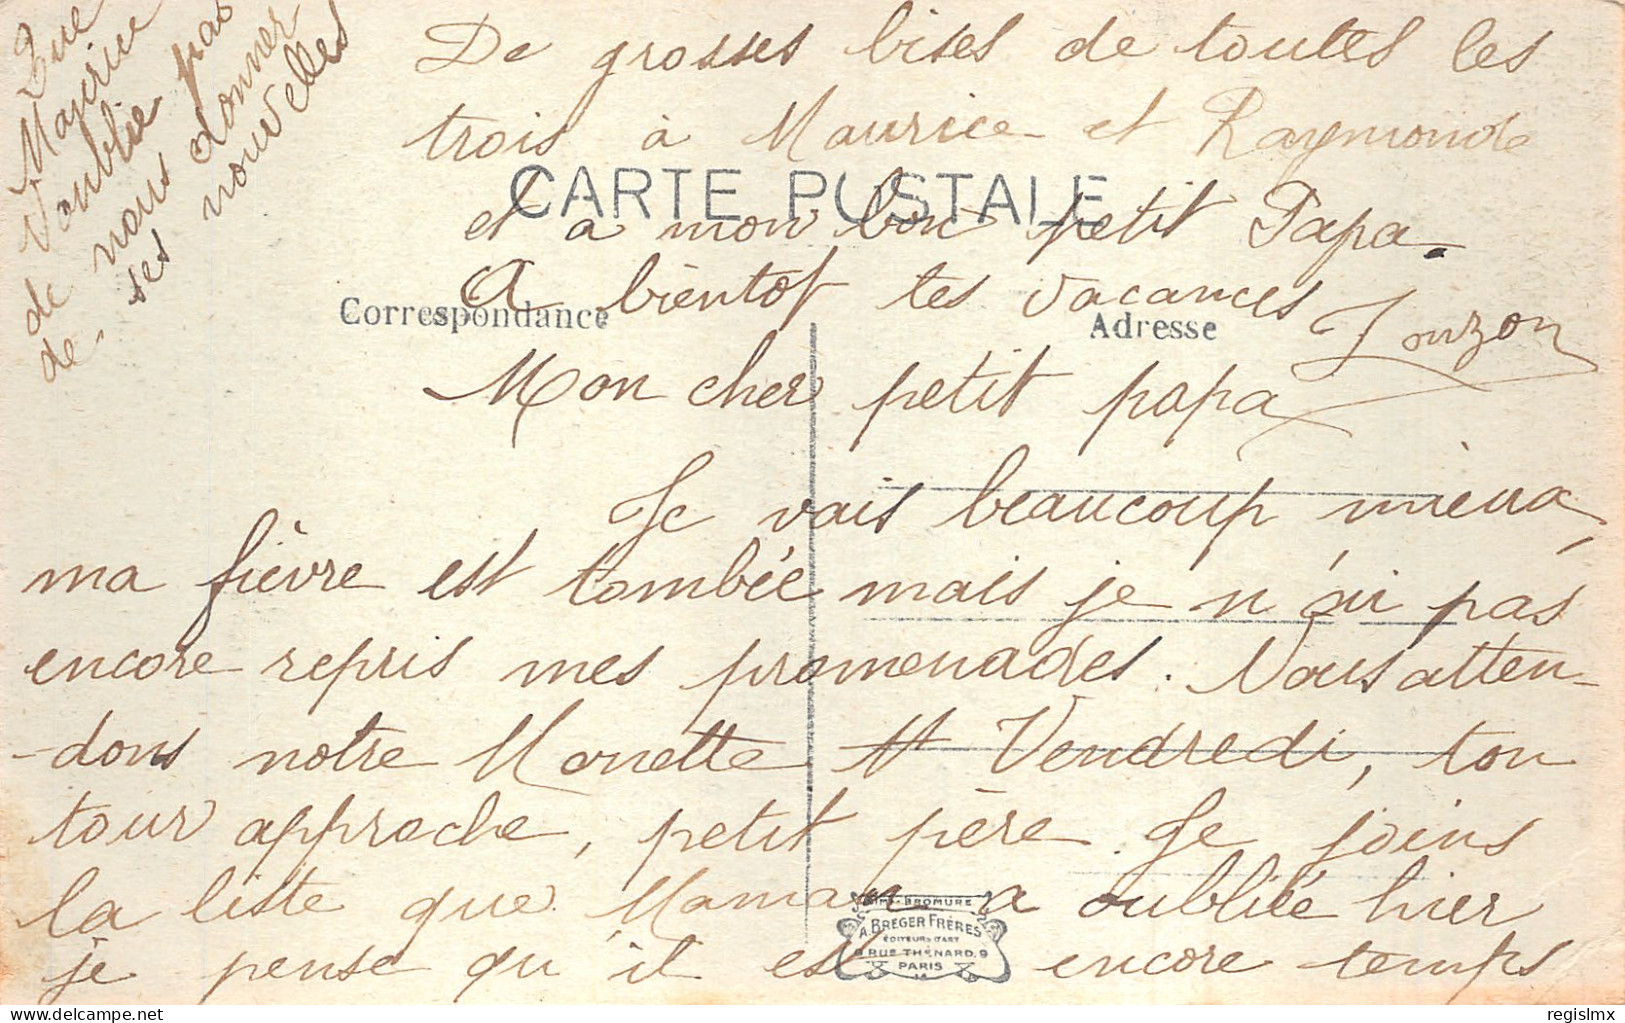 Mon cher petit papa
Je vais beaucoup mieux,
ma fièvre est tombée mais je n'ai pas
encore repris mes promenades. Nous atten-
-dons notre Manette Vendredi, ton
tour approche, petit père. Je joins
la liste que Maman a oubliée hier
je pense qu'il est encore temps
De grosses bises de toutes les
trois à Maurice et Raymonde
et a mon bon petit Papa.
A bientot tes vacances
Zouzon
Que
Maurice
n'oublie pas
de nous donner
de ses nouvelles
CARTE POSTALE
Correspondance
Adresse
BROMURE
A. BREGER FRÈRES
ÉDITEURS D'ART
9 RUE THÉNARD, 9
PARIS
regislmx
delcampe.net